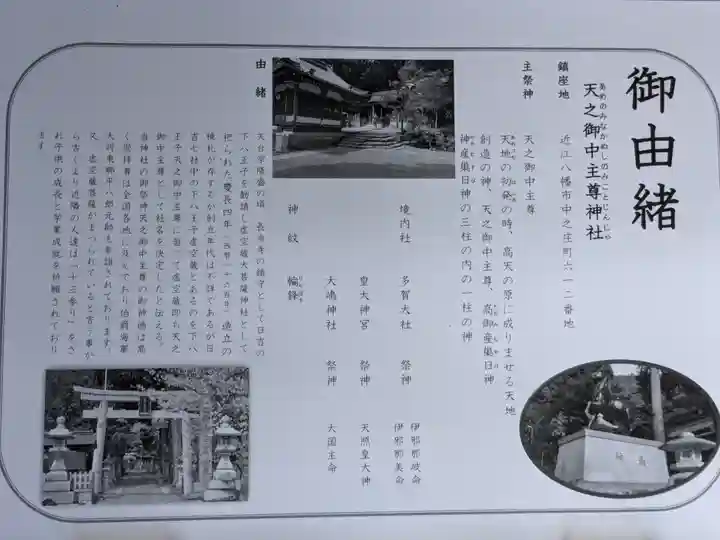 御由緒
天之御中主尊神社
あめのみなかぬしのみことじんじゃ
鎮座地　近江八幡市中之庄町六一二番地
主祭神　天之御中主尊
天地の初発の時、高天の原に成りませる天地
創造の神、天之御中主尊、高御産巣日神
神産巣日神の三柱の内の一柱の神
境内社　多賀大社　祭神　伊邪那岐命
伊邪那美命
皇大神宮　祭神　天照皇大神
大嶋神社　祭神　大国主命
神紋　輪鋒
由緒
天台宗隆盛の頃、長命寺の鎮守として日吉の
下八王子を勧請し虚空蔵大菩薩神社として
祀られた慶長四年
造立の
棟札が存するが創立年代は不詳であるが日
吉七社中の下八王子虚空蔵とあるのを下八
王子天之御中主尊に習って虚空蔵即ち天之
御中主尊として社名を決定したと伝える。
当神社の御祭神天之御中主尊の御神徳は高
く崇拝者は全国各地に
大将東郷平八郎元帥も奉詣されております。
又、虚空蔵菩薩がまつられていると言う事か
ら古くより近隣の人達は「十三参り」をさ
れ子供の成長と学業成就を祈願されており
ます